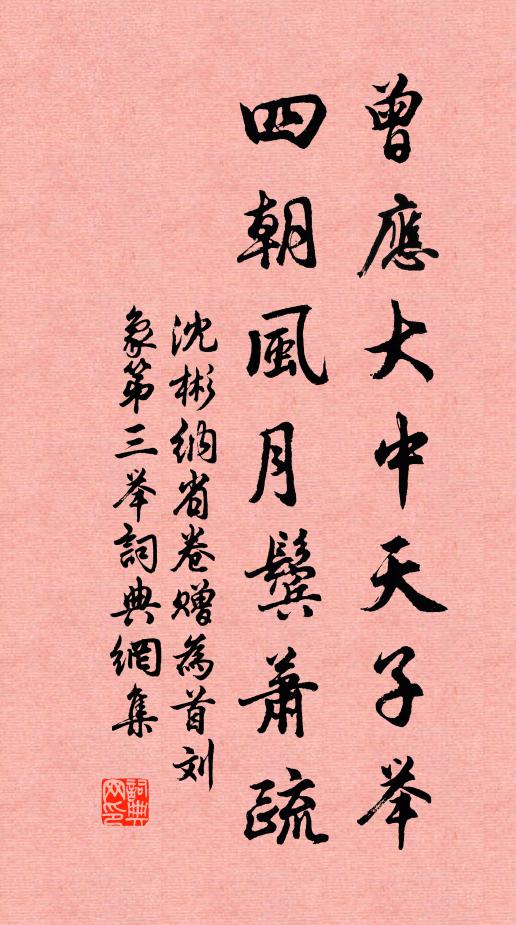 曾應大中天子举
四朝風月鬓蕭疏
沈彬纳省卷赠為首刘
象第三举詞典網集
詞典網印